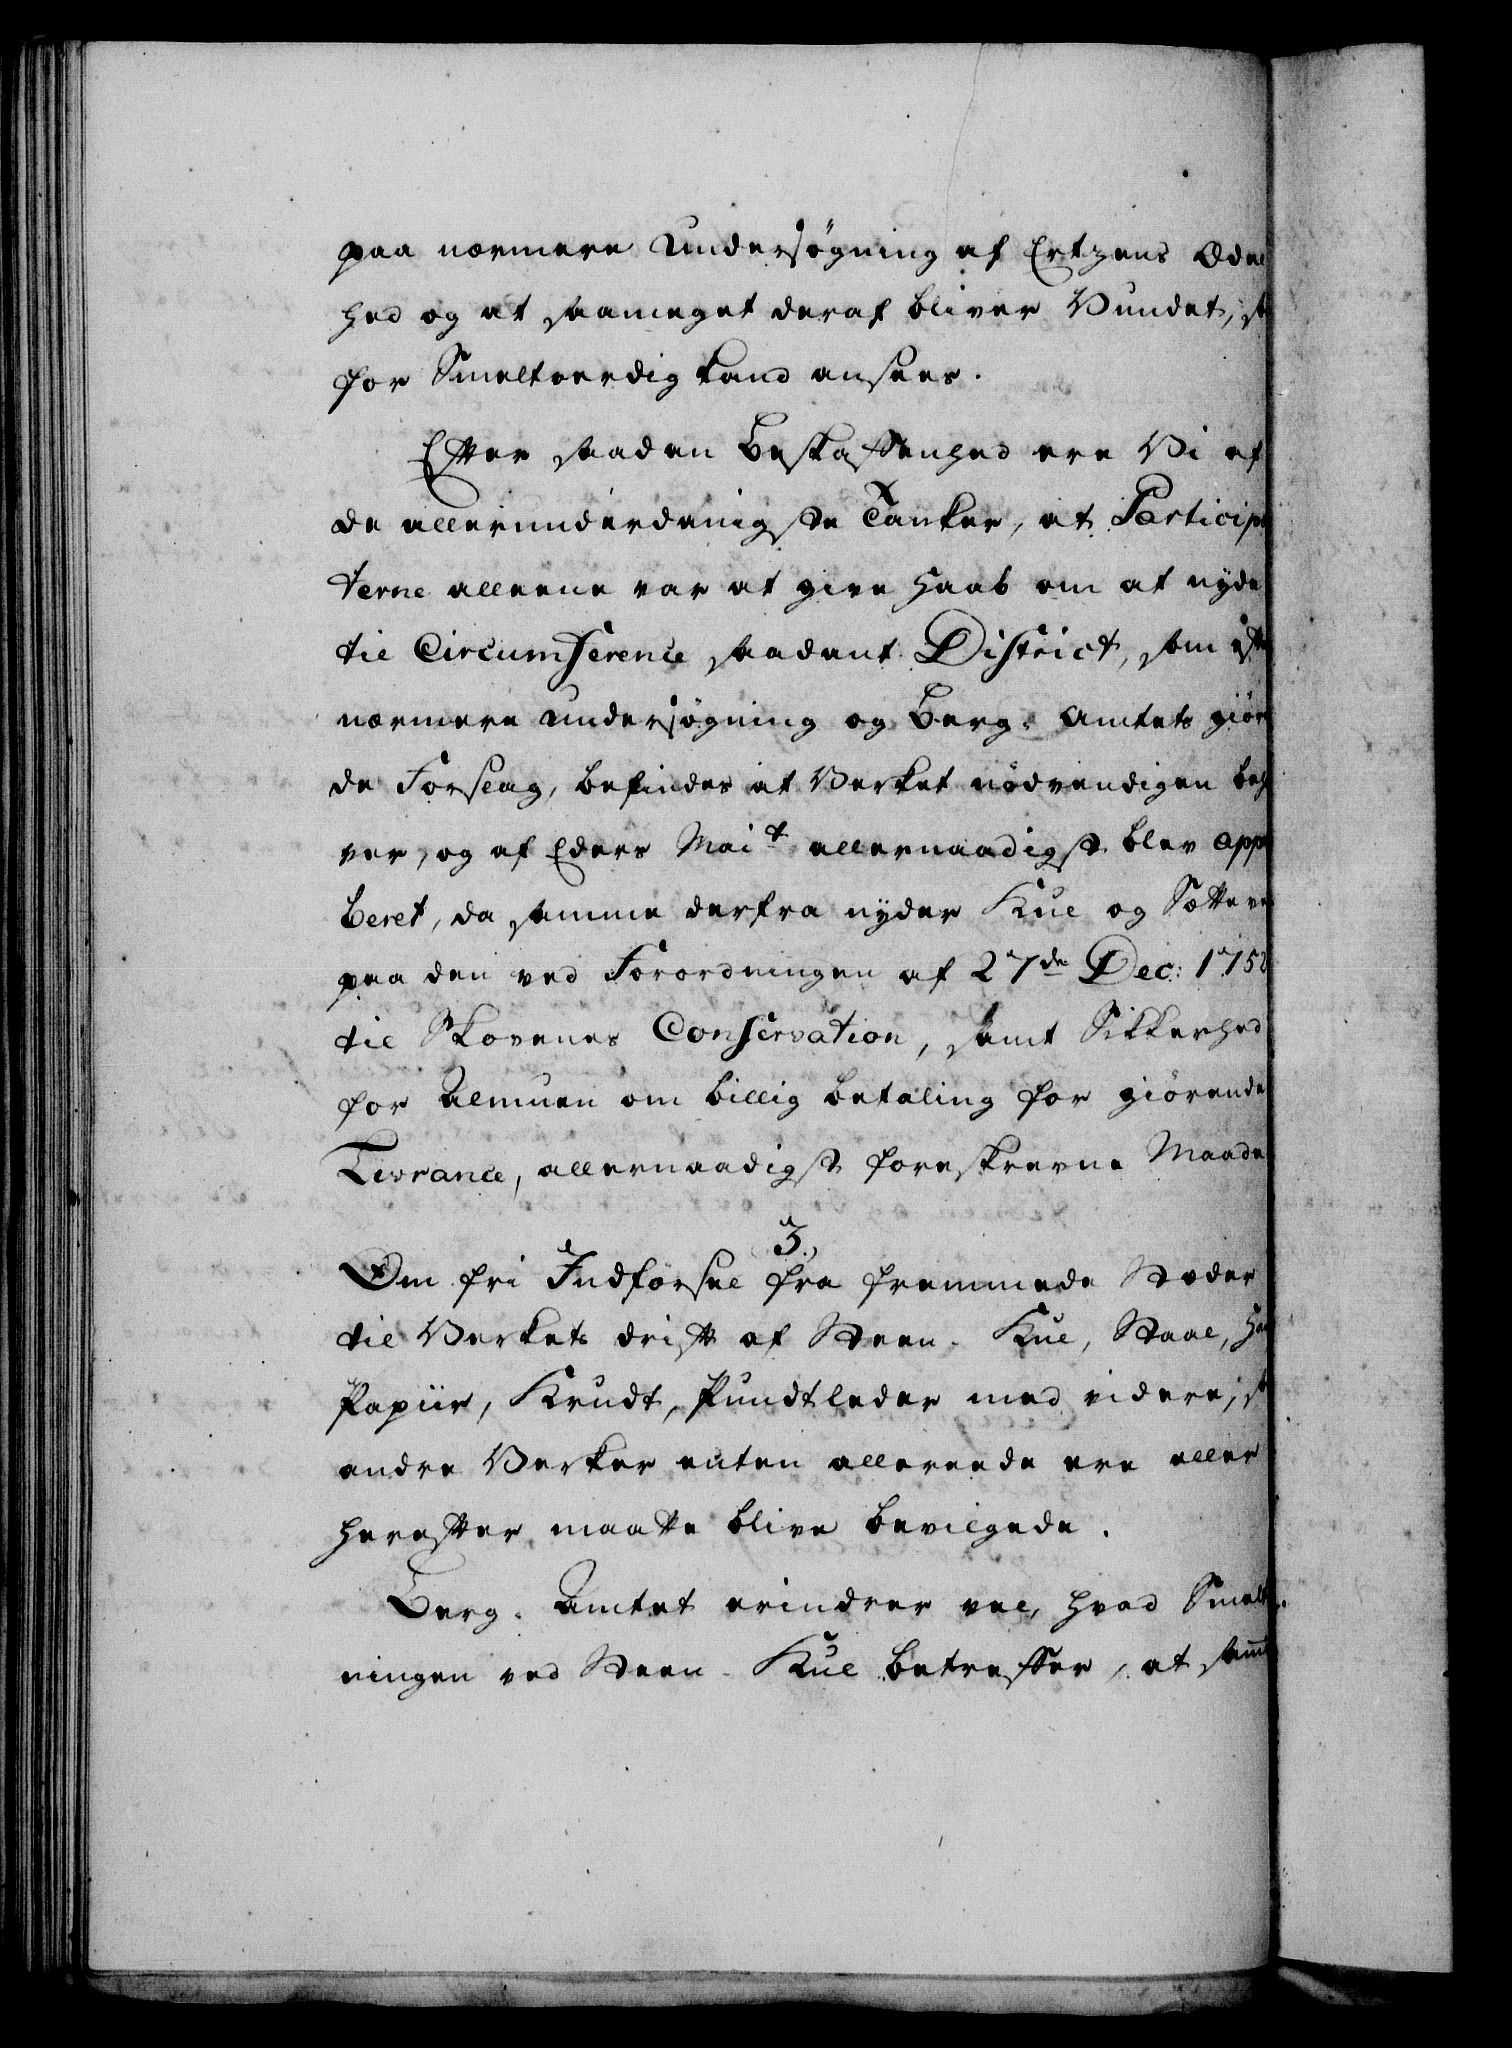 paa nærmere Undersøgning af Ertzens Ædel
hed og at saameget deraf bliver Vundet,
for Smeltværdig kand ansees.
Efter saadan Beskaffenhed ere Vi af
de allerunderdanigste Tanker, at Particip
terne alleene var at give Haab om at nyde
til Circumference saadant District, som
nærmere Undersøgning og Berg-Amtets giør
de Forslag, befindes at Verket nødvendigen beh
ver, og af Eders Mait allernaadigst blev app
beret, da samme derfra nyder Kul og Sætteve
paa den ved Forordningen af 27de Dec: 1752
til Skovenes Conservation, samt Sikkerhed
for Almuen om billig betaling for giørende
Levrance, allernaadigst foreskrevne Maade
3.,
Om fri Indførsel fra fremmede Stæder
til Verkets drift af Steen-Kul, Staal,
Papiir, Krudt, Pundtleder med videre,
andre Verker enten allereede ere eller
herefter maatte blive bevilgede.
Berg-Amtet erindrer vel, hvad Smelt
ningen ved Steen-Kul betreffer, at sam